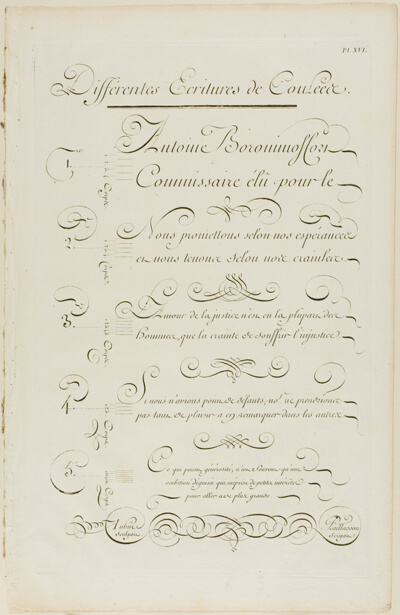 Pl. XVI.
Différentes Ecritures de Coulée.
1.
Antoine Borommoffory
Commissaire élû pour le
Corps
2.
Nous promettons selon nos espérances
et nous tenons selon nos craintes
Corps
3.
L'Amour de la justice n'est en la plûpart des
hommes, que la crainte de souffrir l'injustice
Corps
4.
Si nous n'avions point de défauts, no.s ne prendrions
pas tant de plaisir à en remarquer dans les autres
Corps
5.
Ce qui paroît générosité, n'est souvent qu'une
ambition déguisée qui méprise de petits intérêts
pour aller à de plus grands
Corps
Aubin
Sculpsit
Paillasson
Scripsit